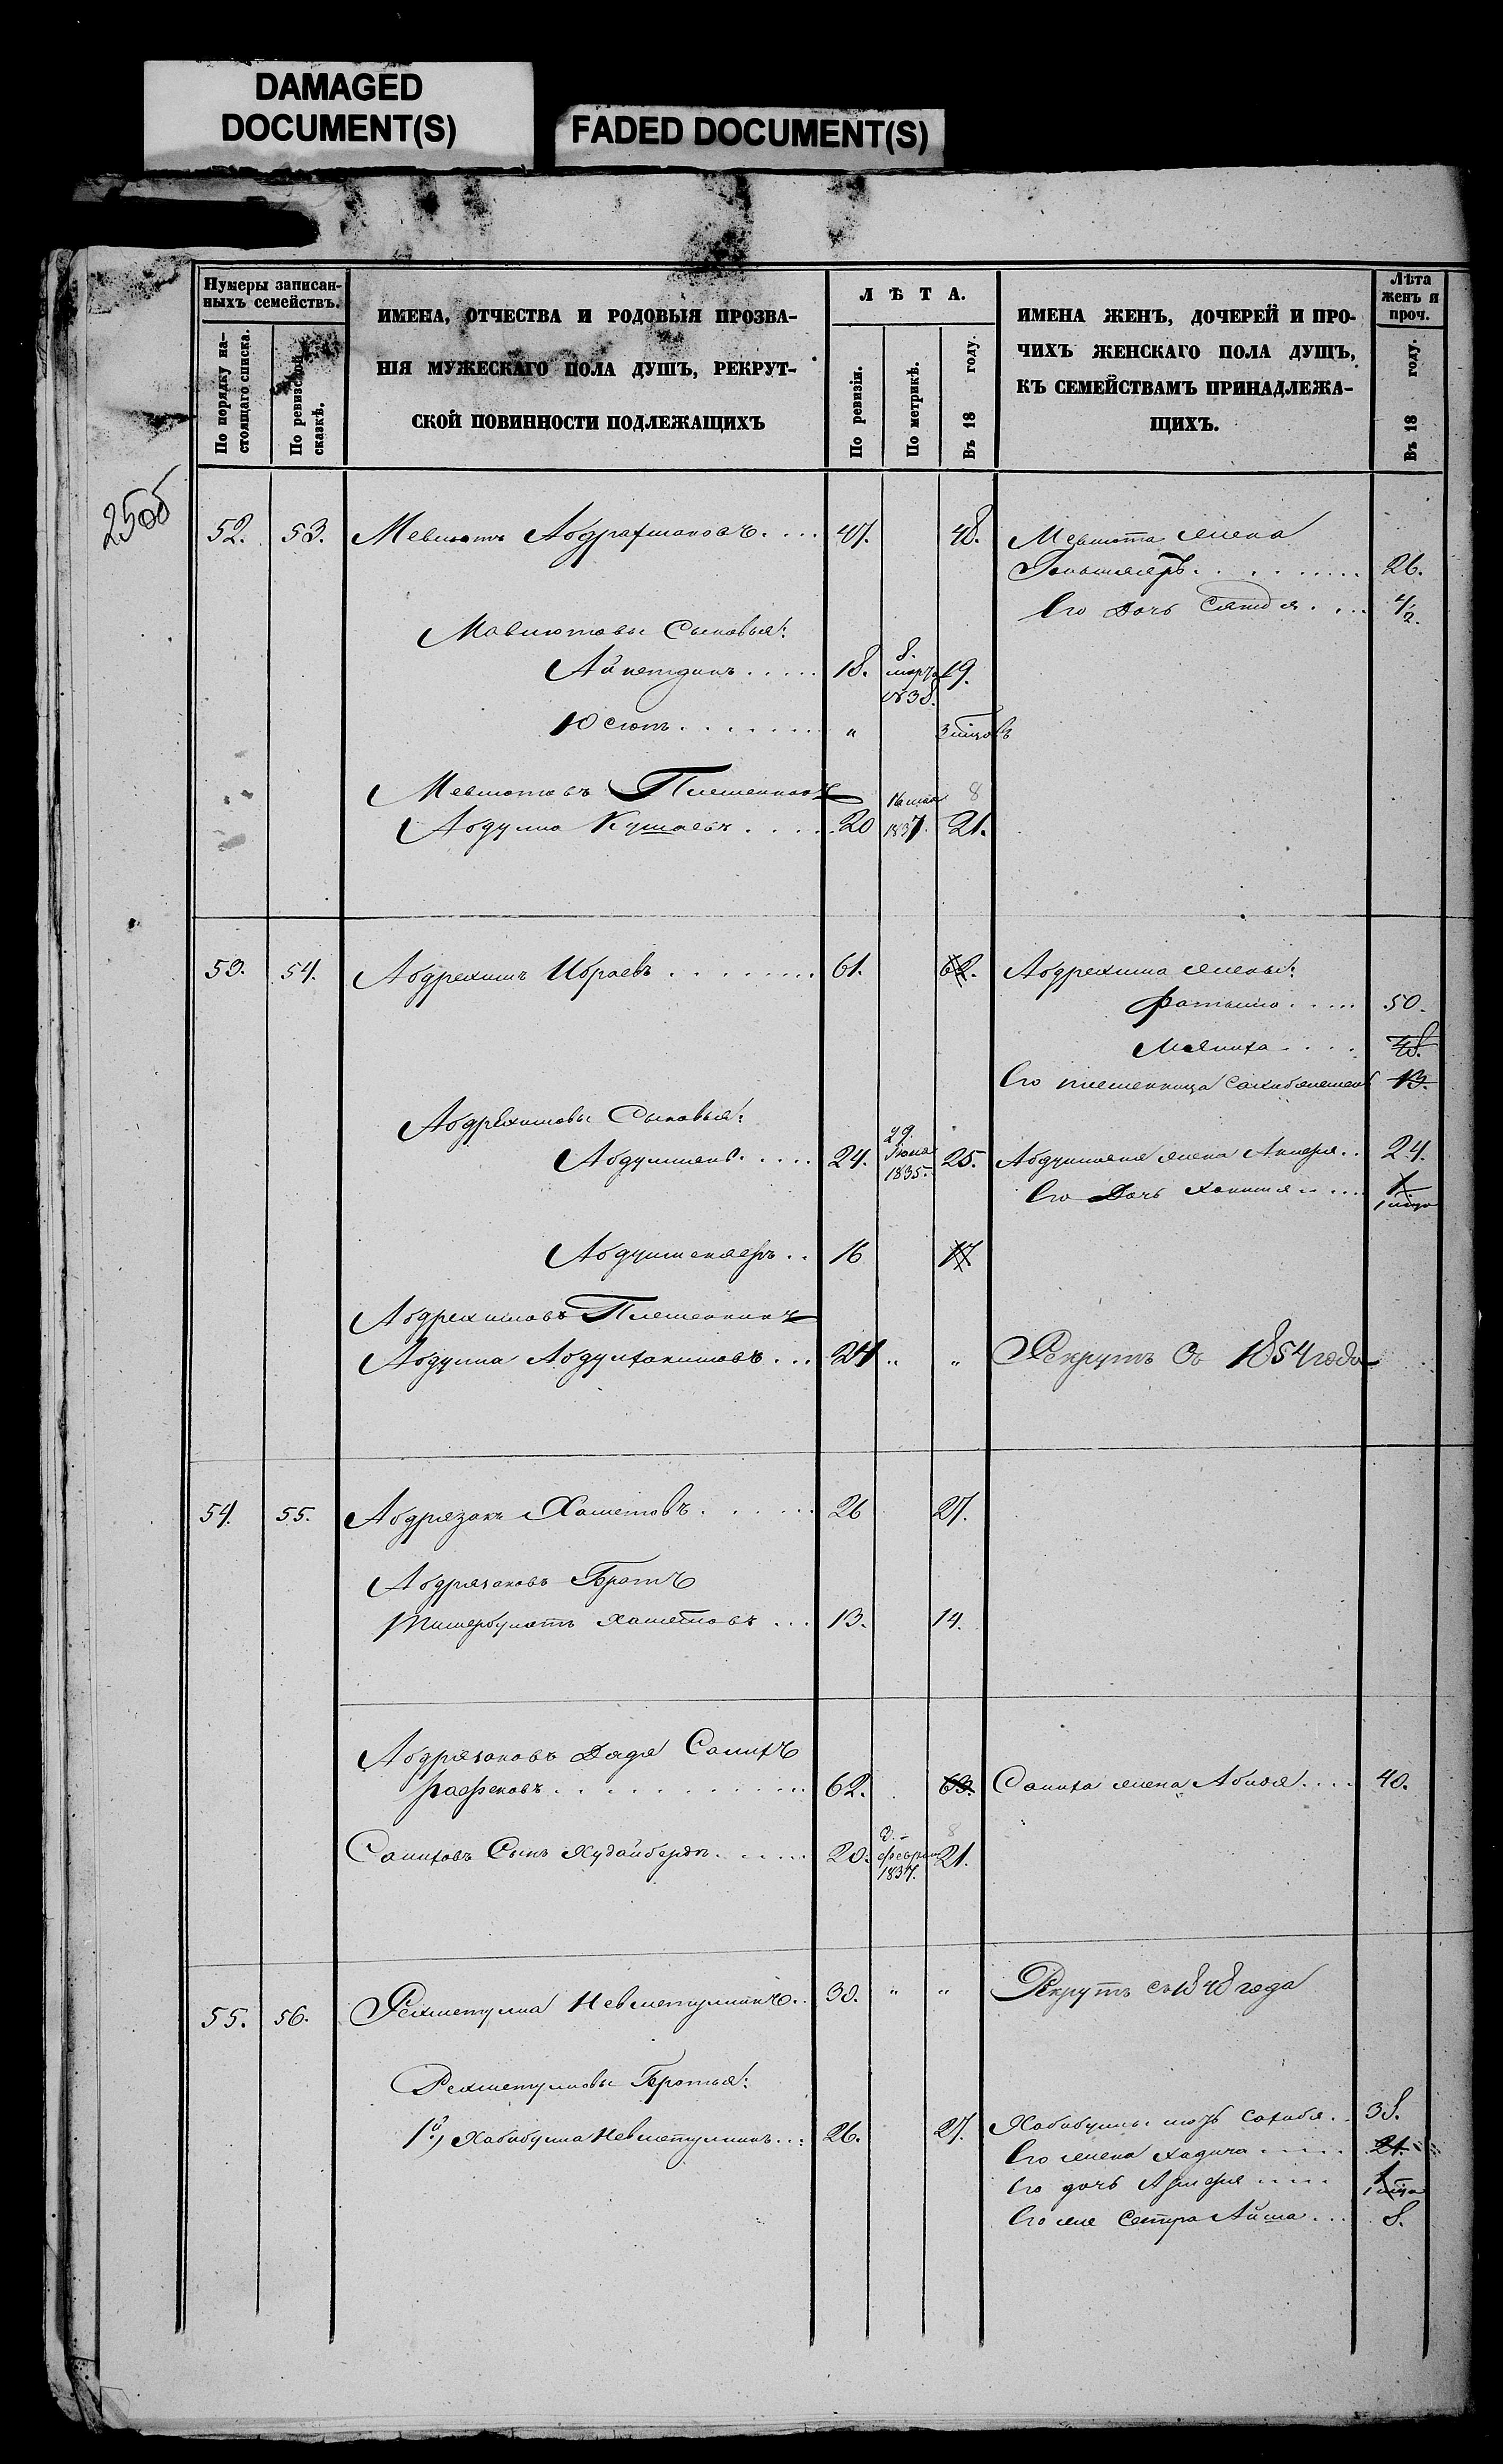 DAMAGED
DOCUMENT(S)
FADED DOCUMENT(S)
Нумеры записан-
ныхъ семействъ.
По порядку на-
стоящаго списка.
По ревизской
сказкѣ.
ИМЕНА, ОТЧЕСТВА И РОДОВЫЯ ПРОЗВА-
НІЯ МУЖЕСКАГО ПОЛА ДУШЪ, РЕКРУТ-
СКОЙ ПОВИННОСТИ ПОДЛЕЖАЩИХЪ
ЛѢТА.
По ревизіи.
По метрикѣ.
Въ 18 году.
ИМЕНА ЖЕНЪ, ДОЧЕРЕЙ И ПРО-
ЧИХЪ ЖЕНСКАГО ПОЛА ДУЩЪ,
КЪ СЕМЕЙСТВАМЪ ПРИНАДЛЕЖА-
ЩИХЪ.
Лѣта
женъ и
проч.
Въ 18 году.
250об
52. 53. Мевлютъ Абдрахмановъ.... 47. 48. Мевлюта жена
26.
Его дочь 4/2.
Мавлютовы Сыновья:
Айнетдинъ..... 18. 8. марта 1838. 19.
Юсюпъ....... „ 3 мѣцовъ
Мевлютовъ Племянникъ
Абдулла Кушаевъ..... 20 16 мая 1837. 21. 8
53. 54. Абдрехимъ Ибраевъ........ 61. 62. Абдрехима жены:
Фатыма..... 50.
Малиха.... 48.
Его племянница 13.
Абдрехимовы Сыновья:
Абдулжянъ..... 24. 29. Іюня 1835. 25. Абдулжяна жена 24.
Его Дочь 1 1 мѣца
16 17
Абдрехимовъ Племянникъ
Абдулла Абдулхакимовъ... 24 „ „ Рекрутъ съ 1854 года
54. 55. Абдрязакъ Хаметовъ...... 26 27.
Абдрязаковъ Братъ
Тимербулатъ Хаметовъ... 13. 14.
Абдрязаковъ Дядя Салихъ
62. 63. Салиха жена 40.
Салиховъ Сынъ Худайберди...... 20. 3. февраля 1837. 21. 8
55. 56. Рехметулла Невметуллинъ.. 30. „ „ Рекрутъ съ 1848 года
Рехметулловы Братья:
1й, Хабибулла Невметуллинъ... 26. 27. Хабибуллы мать Сахибя.. 38.
Его жена Хадича..... 21.
Его дочь 1 1 мѣца
Его же Сестра Айша... 8.